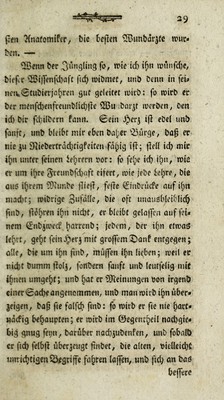 29
sten Anatomiker, die besten Wundärzte wur-
den. —
Wenn der Jüngling so, wie ich ihn wünsche,
dieser Wissenschaft sich widmet, und denn in sei-
nen Studierjahren gut geleitet wird: so wird er
der menschenfreundlichste Wundarzt werden, den
ich dir schildern kann. Sein Herz ist edel und
sanft, und bleibt mir eben daher Bürge, daß er
nie zu Niederträchtigkeiten fähig ist; stell ich mir
ihn unter seinen Lehrern vor: so sehe ich ihn, wie
er um ihre Freundschaft eifert, wie jede Lehre, die
aus ihrem Munde fliest, feste Eindrücke auf ihn
macht; widrige Zufälle, die oft unausbleiblich
sind, stöhren ihn nicht, er bleibt gelassen auf sei-
nem Endzweck harrend; jedem, der ihn etwas
lehrt, geht sein Herz mit grossem Dank entgegen;
alle, die um ihn sind, müssen ihn lieben; weil er
nicht dumm stolz, sondern sanft und leutselig mit
ihnen umgeht; und hat er Meinungen von irgend
einer Sache angenommen, und man wird ihn über-
zeigen, daß sie falsch sind: so wird er sie nie hart-
näckig behaupten; er wird im Gegentheil nachgie-
big gnug seyn, darüber nachzudenken, und sobald
er sich selbst überzeugt findet, die alten, vielleicht
unrichtigen Begriffe fahren lassen, und sich an das
bessere